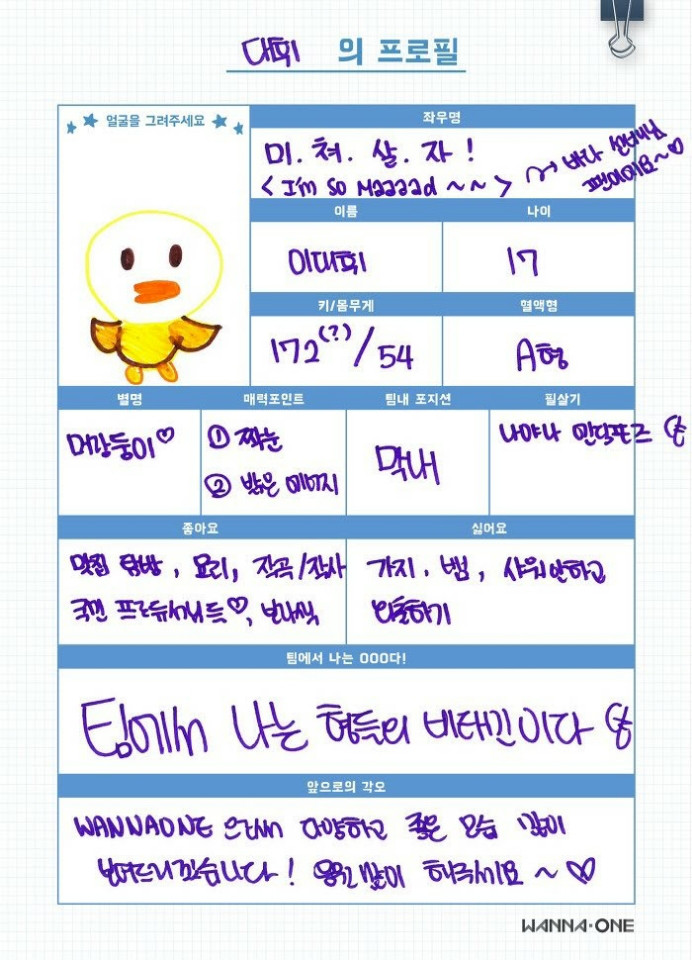 대휘 의 프로필
얼굴을 그려주세요
좌우명
미. 쳐. 살. 자!
< I'm so Maaaad ~~ >
바다 선배님
팬이에요~♡
이름
나이
이대휘
17
키/몸무게
혈액형
172(?)/54
A형
별명
매력포인트
팀내 포지션
필살기
머랑둥이♡
① 짝눈
② 밝은 이미지
막내
나야나 엔딩포즈
좋아요
싫어요
맛집 탐방, 요리, 작곡/작사
국민 프로듀서님들♡,
가지, 뱀, 샤워안하고
외출하기
팀에서 나는 OOO다!
팀에서 나는 형들의 비타민이다
앞으로의 각오
WANNAONE 으로써 다양하고 좋은 모습 많이
보여드리겠습니다! 응원 많이 해주세요 ~ ♡
WANNA·ONE